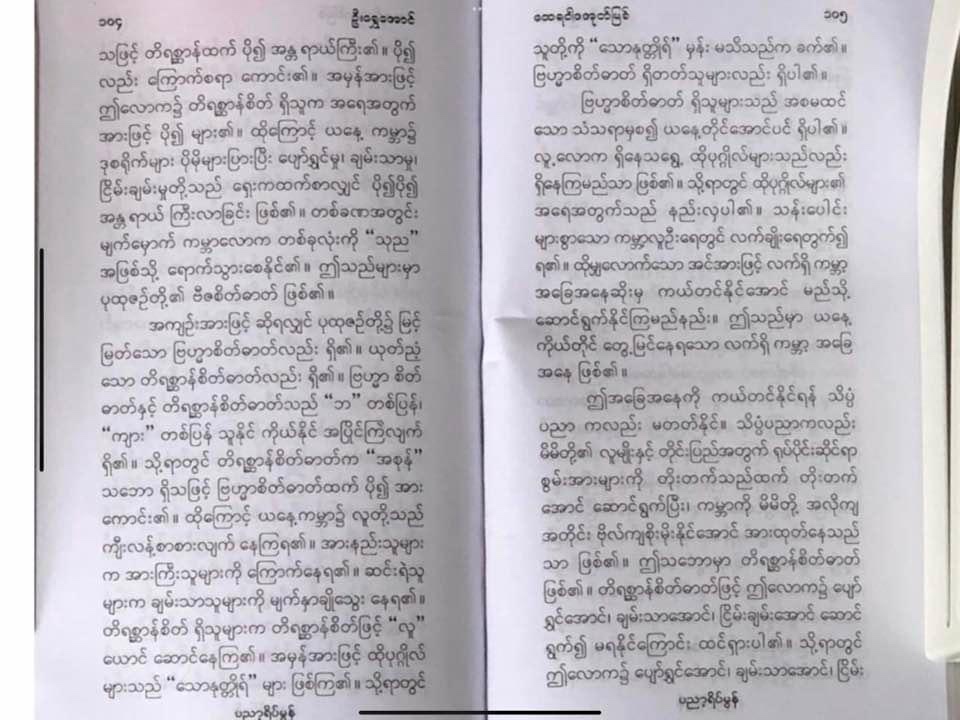 ၁၀၄
ဦးရွှေအောင်
သဖြင့် တိရစ္ဆာန်ထက် ပို၍ အန္တရာယ်ကြီး၏။ ပို၍
လည်း ကြောက်စရာ ကောင်း၏။ အမှန်အားဖြင့်
ဤလောက၌ တိရစ္ဆာန်စိတ် ရှိသူက အရေအတွက်
အားဖြင့် ပို၍ များ၏။ ထို့ကြောင့် ယနေ့ ကမ္ဘာ၌
ဒုစရိုက်များ ပိုမိုများပြားပြီး ပျော်ရွှင်မှု၊ ချမ်းသာမှု၊
ငြိမ်းချမ်းမှုတို့သည် ရှေးကထက်စာလျှင် ပို၍ပို၍
အန္တရာယ် ကြီးလာခြင်း ဖြစ်၏။ တစ်ခဏအတွင်း
မျက်မှောက် ကမ္ဘာလောက တစ်ခုလုံးကို “သုည”
အဖြစ်သို့ ရောက်သွားစေနိုင်၏။ ဤသည်များမှာ
ပုထုဇဉ်တို့၏ ဗီဇစိတ်ဓာတ် ဖြစ်၏။
အကျဉ်းအားဖြင့် ဆိုရလျှင် ပုထုဇဉ်တို့၌ မြင့်
မြတ်သော ဗြဟ္မာစိတ်ဓာတ်လည်း ရှိ၏။ ယုတ်ညံ့
သော တိရစ္ဆာန်စိတ်ဓာတ်လည်း ရှိ၏။ ဗြဟ္မာ စိတ်
ဓာတ်နှင့် တိရစ္ဆာန်စိတ်ဓာတ်သည် “ဘ” တစ်ပြန်၊
“ကျား” တစ်ပြန် သူနိုင် ကိုယ်နိုင် အပြိုင်ကြဲလျက်
ရှိ၏။ သို့ရာတွင် တိရစ္ဆာန်စိတ်ဓာတ်က “အစုန်”
သဘော ရှိသဖြင့် ဗြဟ္မာစိတ်ဓာတ်ထက် ပို၍ အား
ကောင်း၏။ ထို့ကြောင့် ယနေ့ကမ္ဘာ၌ လူတို့သည်
ကြီးလန့်စာစားလျက် နေကြရ၏။ အားနည်းသူများ
က အားကြီးသူများကို ကြောက်နေရ၏။ ဆင်းရဲသူ
များက ချမ်းသာသူများကို မျက်နှာချိုသွေး နေရ၏။
တိရစ္ဆာန်စိတ် ရှိသူများက တိရစ္ဆာန်စိတ်ဖြင့် “လူ”
ယောင် ဆောင်နေကြ၏။ အမှန်အားဖြင့် ထိုပုဂ္ဂိုလ်
များသည် “သောနုတ္တိုရ်” များ ဖြစ်ကြ၏။ သို့ရာတွင်
ပညာ့ရိပ်မွန်
ထေရဝါဒအုတ်မြစ်
၁၀၅
သူတို့ကို “သောနုတ္တိုရ်” မှန်း မသိသည်က ခက်၏။
ဗြဟ္မာစိတ်ဓာတ် ရှိတတ်သူများလည်း ရှိပါ၏။
ဗြဟ္မာစိတ်ဓာတ် ရှိသူများသည် အစမထင်
သော သံသရာမှစ၍ ယနေ့တိုင်အောင်ပင် ရှိပါ၏။
လူ့လောက ရှိနေသရွေ့ ထိုပုဂ္ဂိုလ်များသည်လည်း
ရှိနေကြမည်သာ ဖြစ်၏။ သို့ရာတွင် ထိုပုဂ္ဂိုလ်များ၏
အရေအတွက်သည် နည်းလှပါ၏။ သန်းပေါင်း
များစွာသော ကမ္ဘာ့လူဦးရေတွင် လက်ချိုးရေတွက်၍
ရ၏။ ထိုမျှလောက်သော အင်အားဖြင့် လက်ရှိ ကမ္ဘာ့
အခြေအနေဆိုးမှ ကယ်တင်နိုင်အောင် မည်သို့
ဆောင်ရွက်နိုင်ကြမည်နည်း။ ဤသည်မှာ ယနေ့
ကိုယ်တိုင် တွေ့မြင်နေရသော လက်ရှိ ကမ္ဘာ့ အခြေ
အနေ ဖြစ်၏။
ဤအခြေအနေကို ကယ်တင်နိုင်ရန် သိပ္ပံ
ပညာ ကလည်း မတတ်နိုင်။ သိပ္ပံပညာကလည်း
မိမိတို့၏ လူမျိုးနှင့် တိုင်းပြည်အတွက် ရုပ်ပိုင်းဆိုင်ရာ
စွမ်းအားများကို တိုးတက်သည်ထက် တိုးတက်
အောင် ဆောင်ရွက်ပြီး၊ ကမ္ဘာကို မိမိတို့ အလိုကျ
အတိုင်း ဗိုလ်ကျစိုးမိုးနိုင်အောင် အားထုတ်နေသည်
သာ ဖြစ်၏။ ဤသဘောမှာ တိရစ္ဆာန်စိတ်ဓာတ်
ဖြစ်၏။ တိရစ္ဆာန်စိတ်ဓာတ်ဖြင့် ဤလောက၌ ပျော်
ရွှင်အောင်၊ ချမ်းသာအောင်၊ ငြိမ်းချမ်းအောင် ဆောင်
ရွက်၍ မရနိုင်ကြောင်း ထင်ရှားပါ၏။ သို့ရာတွင်
ဤလောက၌ ပျော်ရွှင်အောင်၊ ချမ်းသာအောင်၊ ငြိမ်း
ပညာ့ရိပ်မွန်